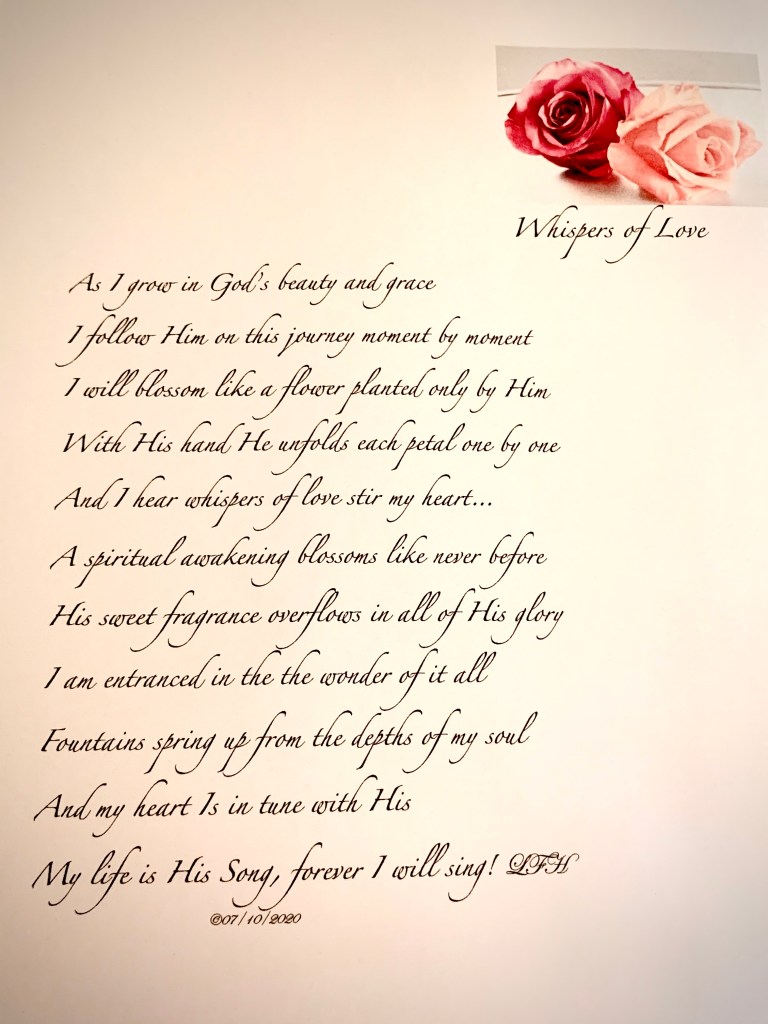 Whispers of Love
As I grow in God's beauty and grace
I follow Him on this journey moment by moment
I will blossom like a flower planted only by Him
With His hand He unfolds each petal one by one
And I hear whispers of love stir my heart...
A spiritual awakening blossoms like never before
His sweet fragrance overflows in all of His glory
I am entranced in the the wonder of it all
Fountains spring up from the depths of my soul
And my heart Is in tune with His
My life is His Song, forever I will sing! LFH
©07/10/2020